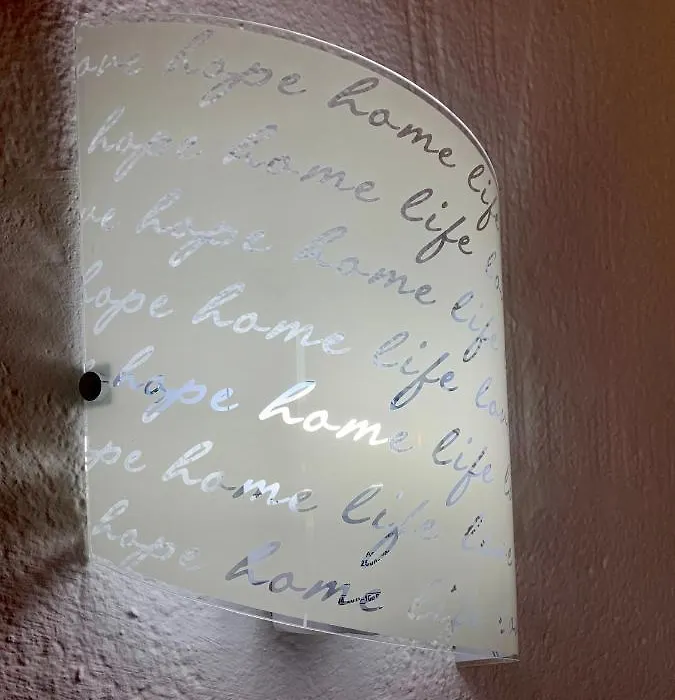 ove hope home life
hope home life lo
ve hope home life
hope home life lov
hope home life l
ope home life
hope home life